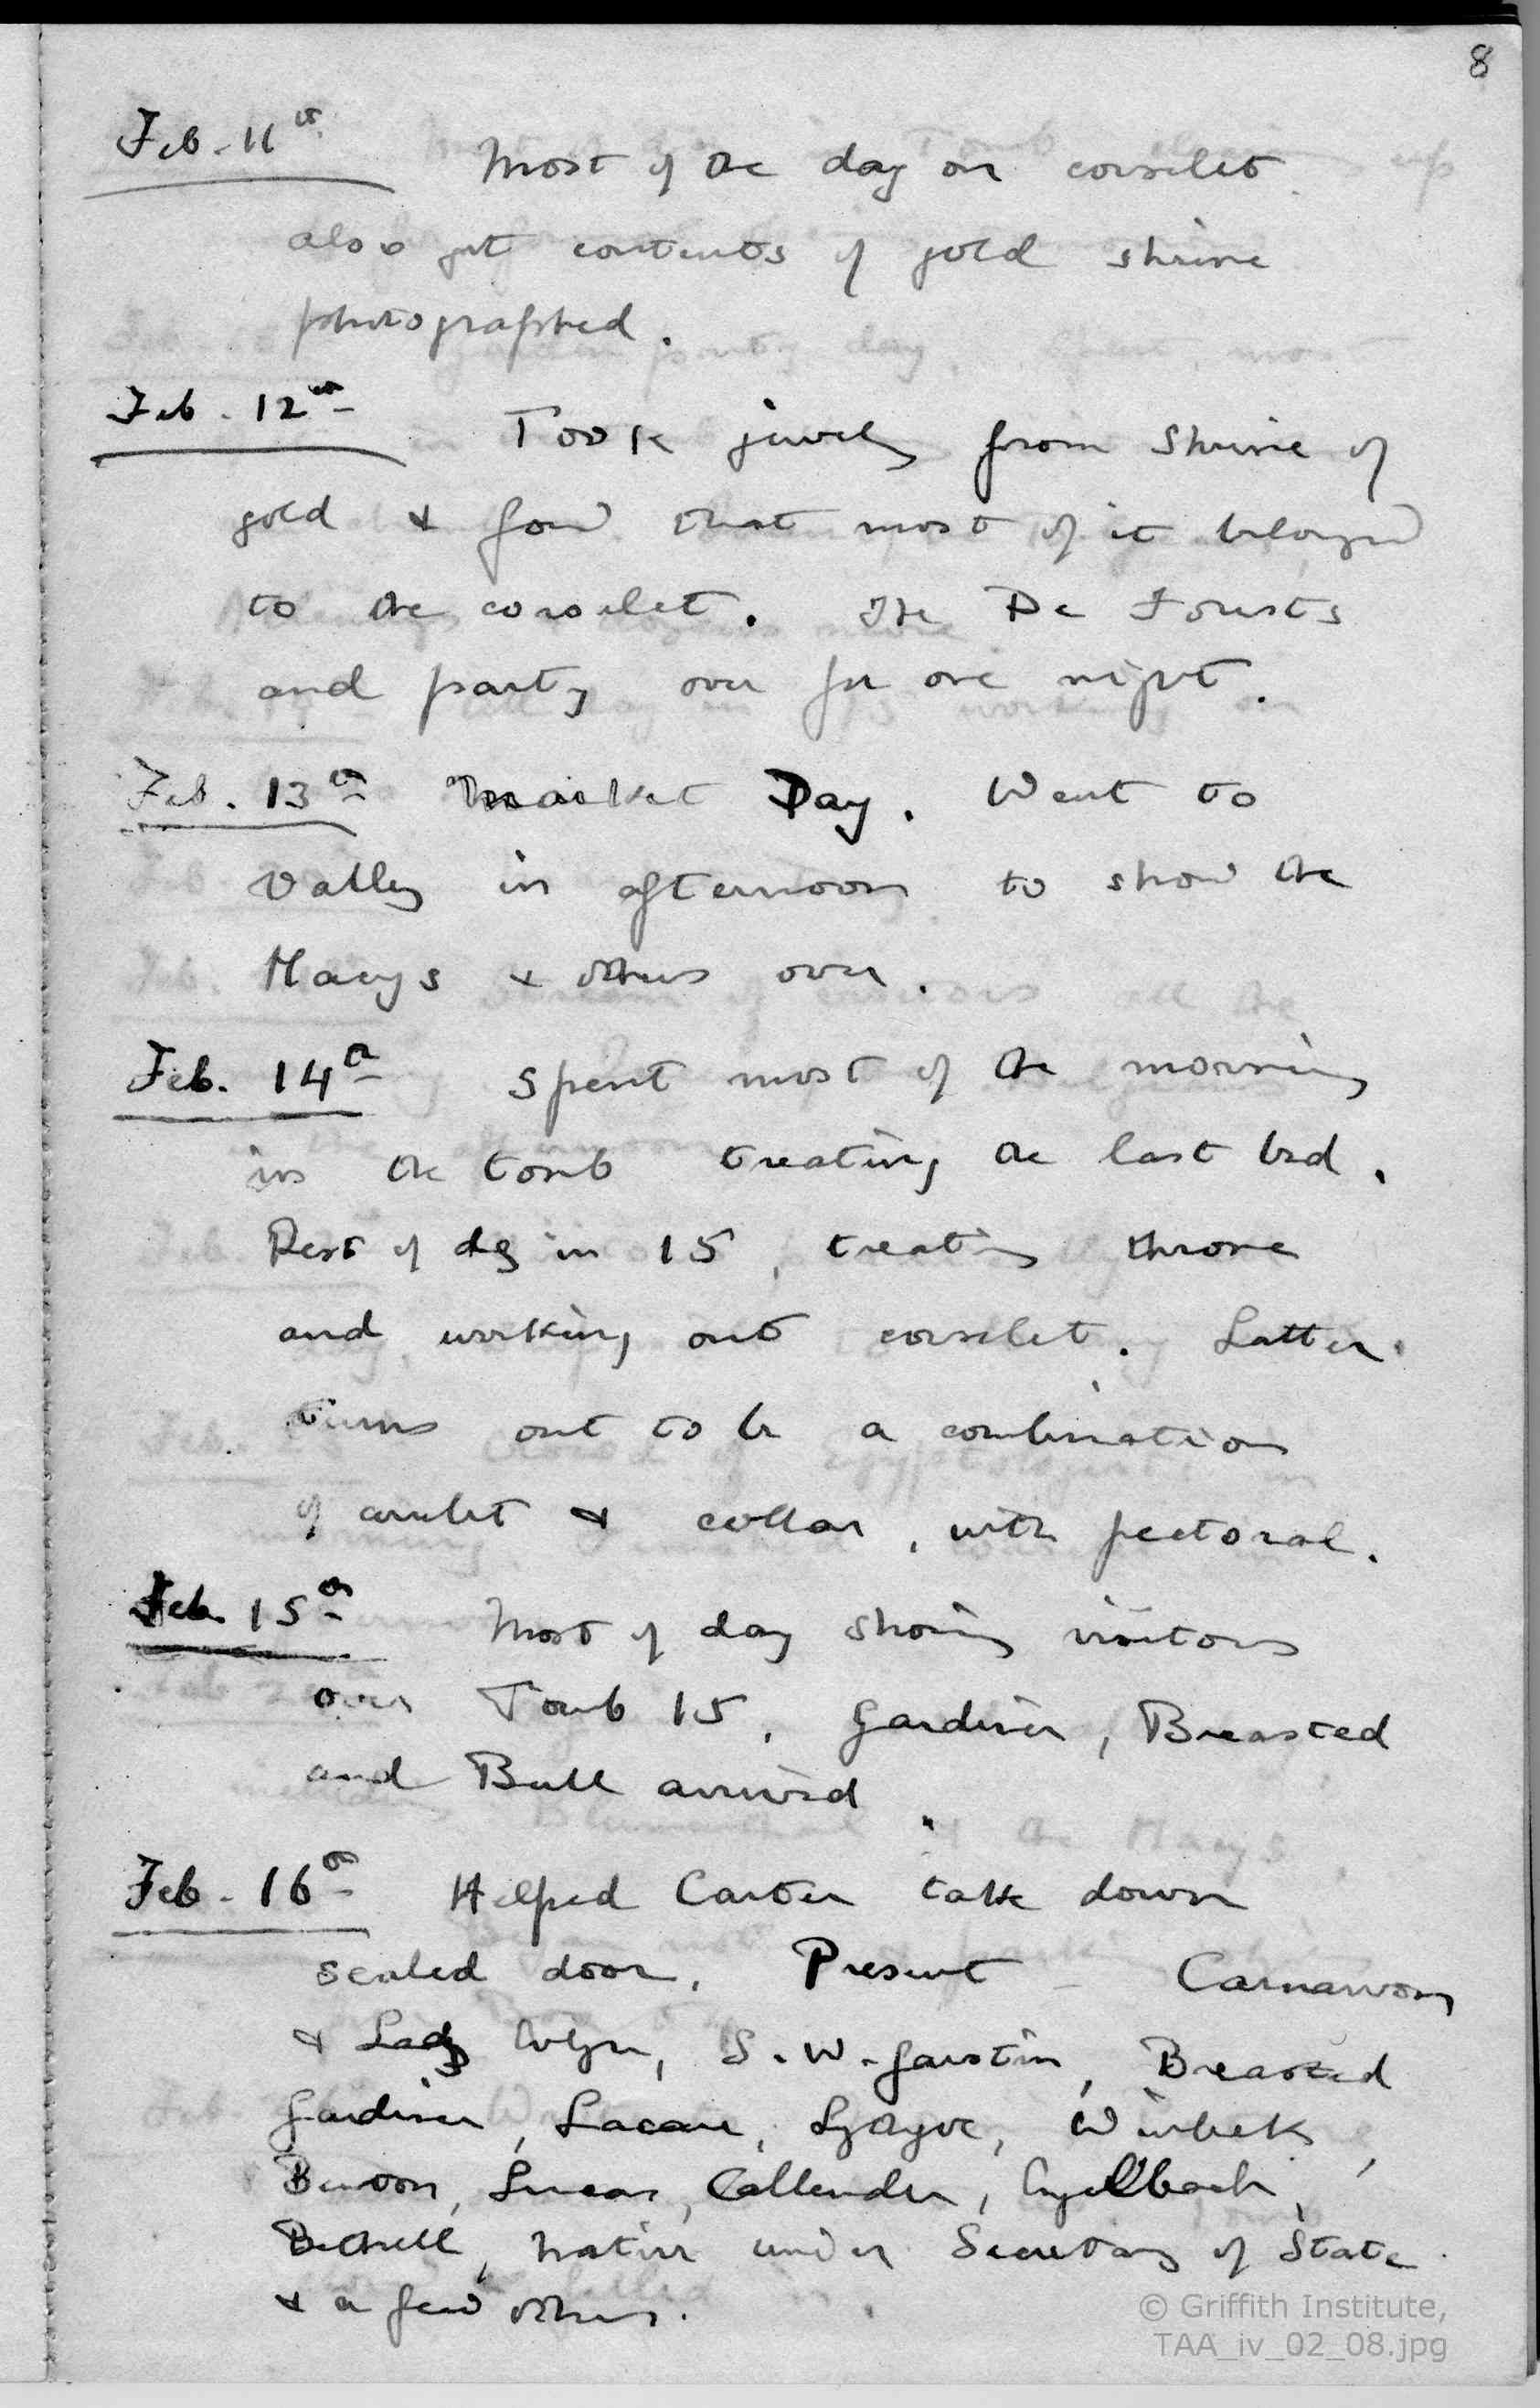 8
Feb. 11th
Most of the day on corselet.
also got contents of gold shrine
photographed.
Feb. 12th Took jewely from shrine of
gold & found that most of it belonged
to the corselet. The De Forests
and party over for one night.
Feb. 13th Market Day. Went to
Valley in afternoon to show the
Macys & others over.
Feb. 14th Spent most of the morning
in the tomb treating the last bed.
Rest of day in 15, treating throne
and working out corselet. Latter
turns out to be a combination
of corselet & collar, with pectoral.
Feb. 15th Most of day showing visitors
over Tomb 15. Gardiner, Breasted
and Bull arrived.
Feb. 16th Helped Carter take down
sealed door. Present - Carnarvon
& Lady Evelyn, S. W. Garstin, Breasted
Gardiner, Lacau, Lythgoe, Winlock,
Burton, Lucas, Callender, Engelbach,
Bethell, native under Secretary of State
& a few others.
© Griffith Institute,
TAA_iv_02_08.jpg